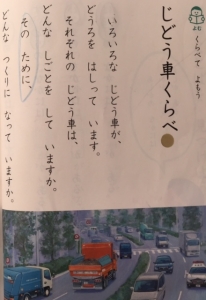 よむ
くらべて よもう
じどう車くらべ
いろいろな じどう車が、
どうろを はしって います。
それぞれの じどう車は、
どんな しごとを して いますか。
その ために、
どんな つくりに なって いますか。